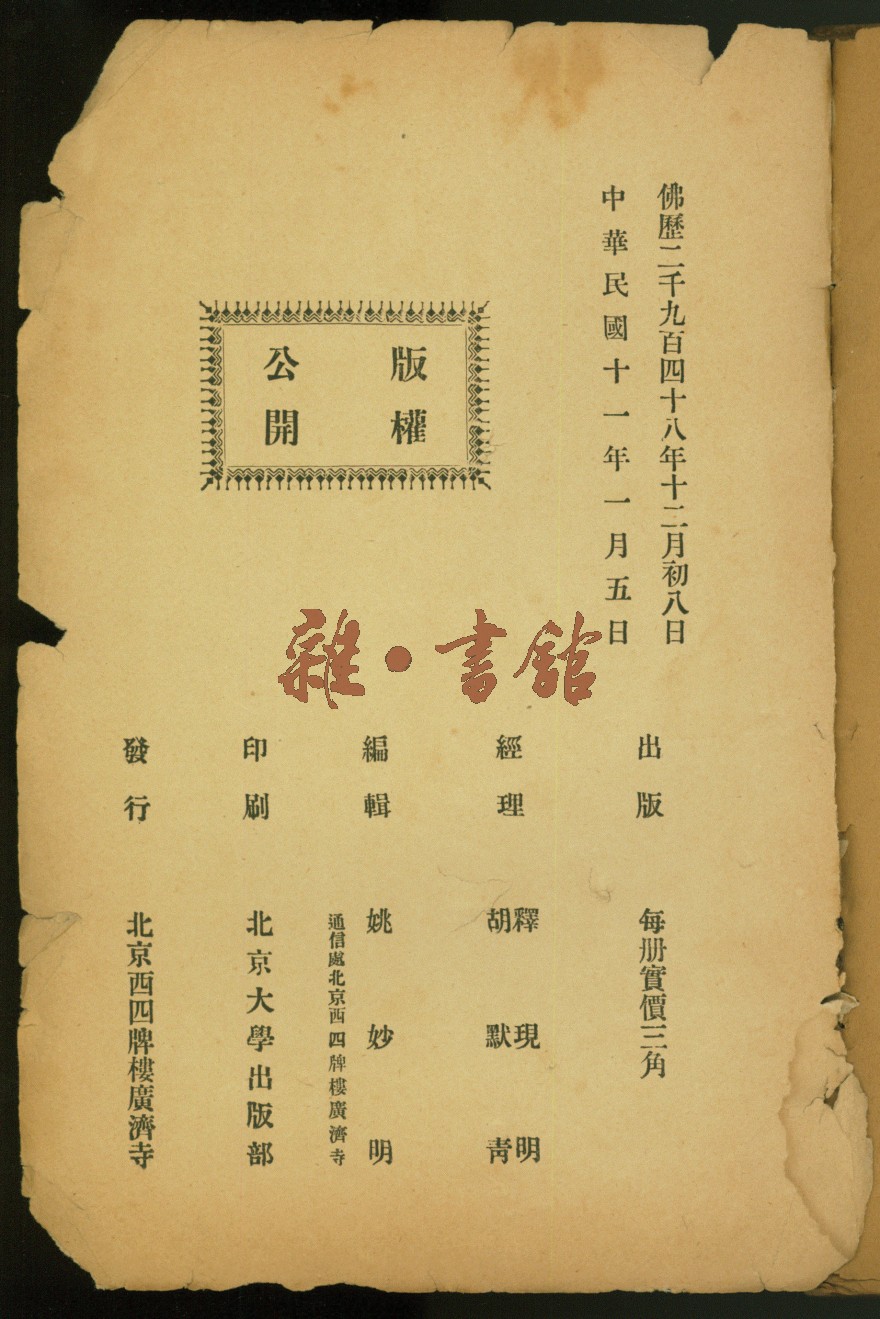 佛歷二千九百四十八年十二月初八日
中華民國十一年一月五日
版權
公開
雜·書館
出版 每册實價三角
經理 釋現明
胡默靑
編輯 姚妙明
通信處北京西四牌樓廣濟寺
印刷 北京大學出版部
發行 北京西四牌樓廣濟寺